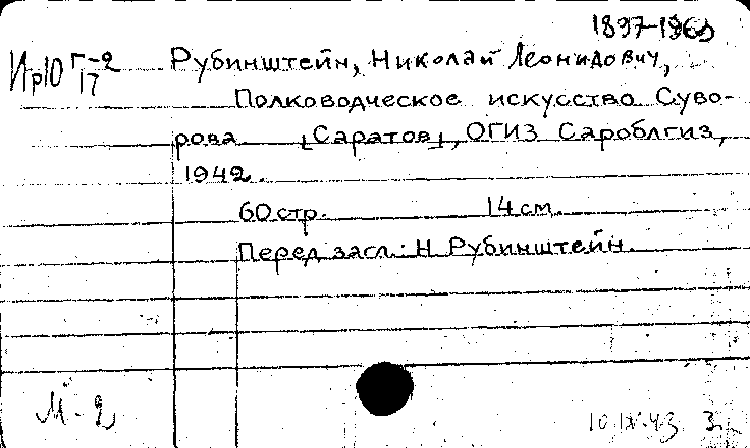 1897-1963
Ир10 Г-2
17
Рубинштейн, Николай Леонидович,
Полководческое искусство Суво-
рова [Саратов], ОГИЗ Сароблгиз,
1942.
60 стр. 14 см.
Перед загл.: Н Рубинштейн.
М-2
10.IX.43 З.